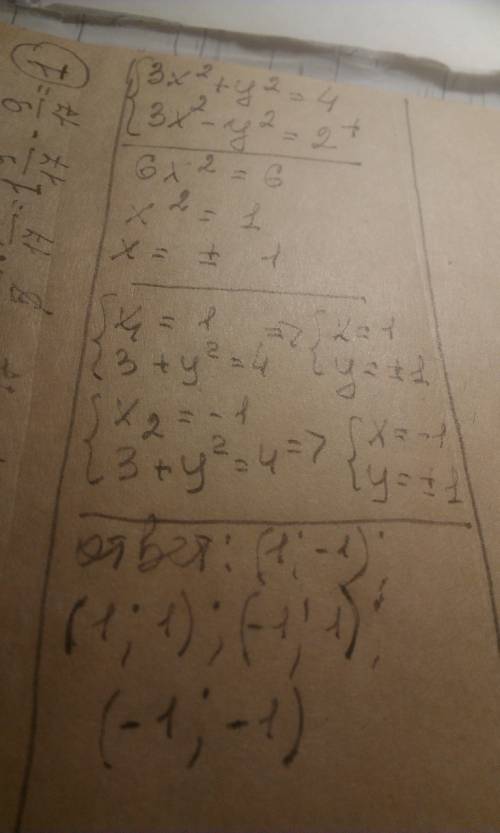 {3x² + y² = 4
{3x² - y² = 2 +
6x² = 6
x² = 1
x = ± 1
{x₁ = 1 => {x = 1
{3 + y² = 4 {y = ±1
{x₂ = -1
{3 + y² = 4 => {x = -1
{y = ±1
ответ: (1; -1);
(1; 1); (-1; 1);
(-1; -1)